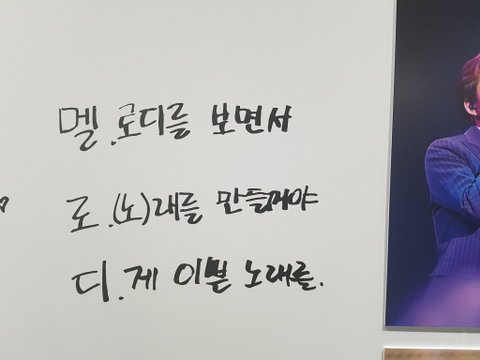 멜.로디를 보면서
로.(노)래를 만들거야
디.게 이쁜 노래를.